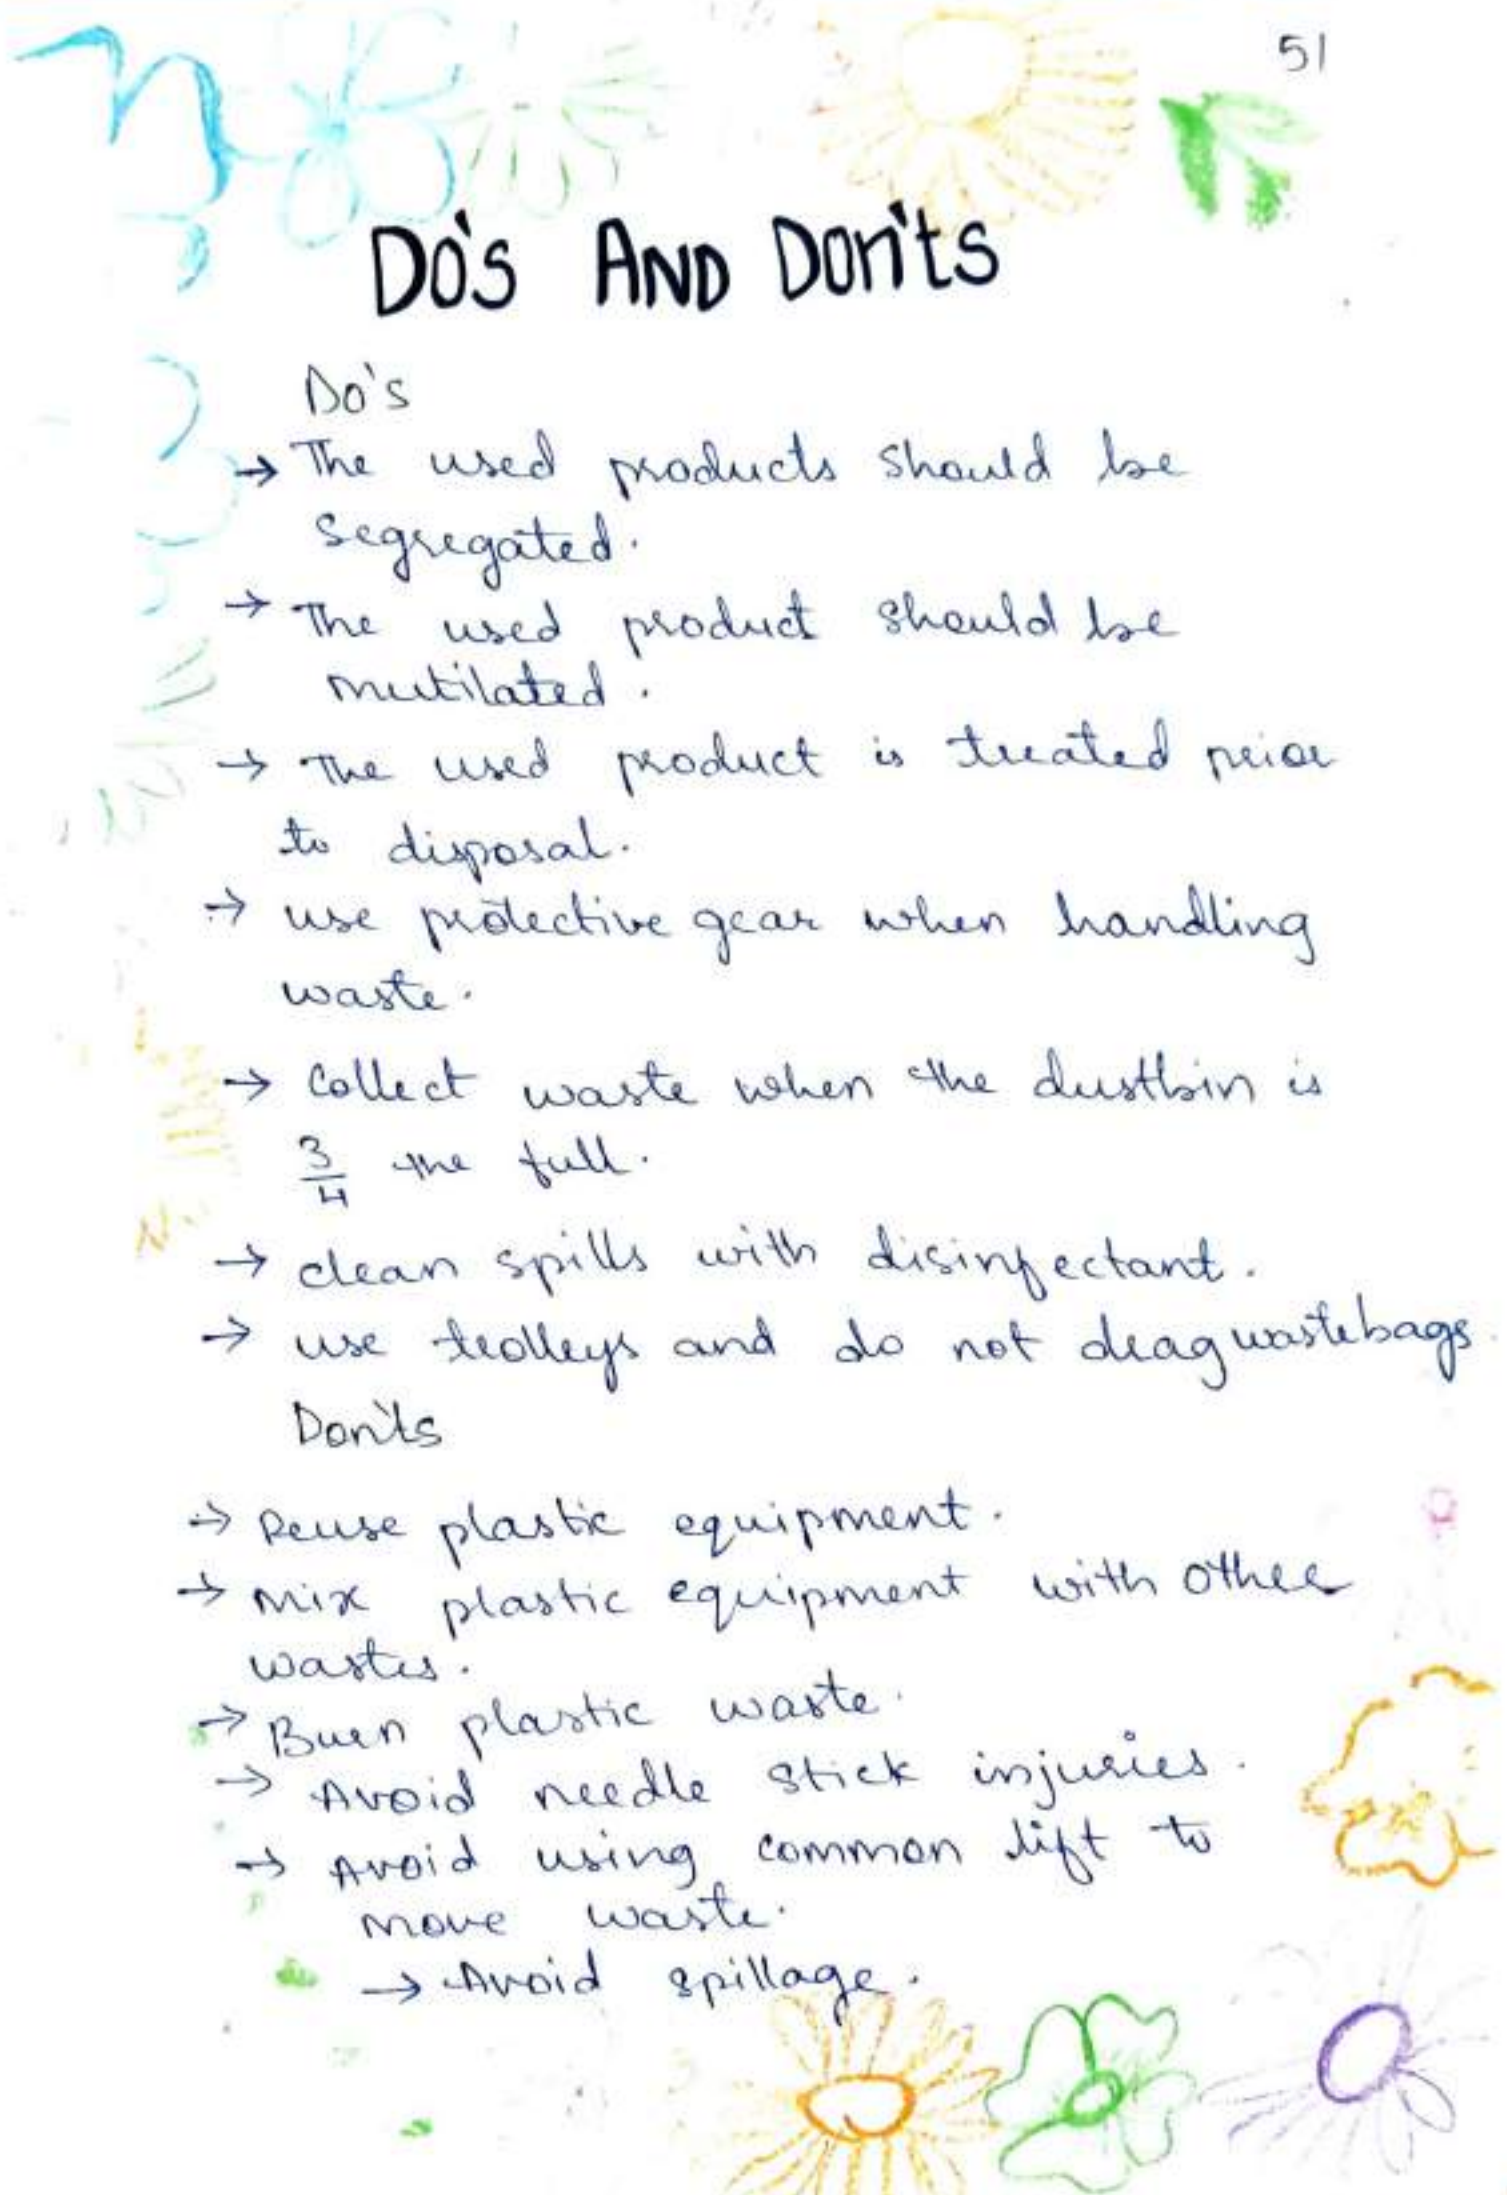 51
Do's AND Don'ts
Do's
→ The used products should be
segregated.
→ The used product should be
mutilated.
→ The used product is treated prior
to disposal.
→ use protective gear when handling
waste.
→ Collect waste when the dustbin is
3/4 the full.
→ clean spills with disinfectant.
→ use trolleys and do not drag wastebags.
Don'ts
→ Reuse plastic equipment.
→ Mix plastic equipment with other
wastes.
→ Burn plastic waste.
→ Avoid needle stick injuries.
→ Avoid using common lift to
move waste.
→ Avoid spillage.